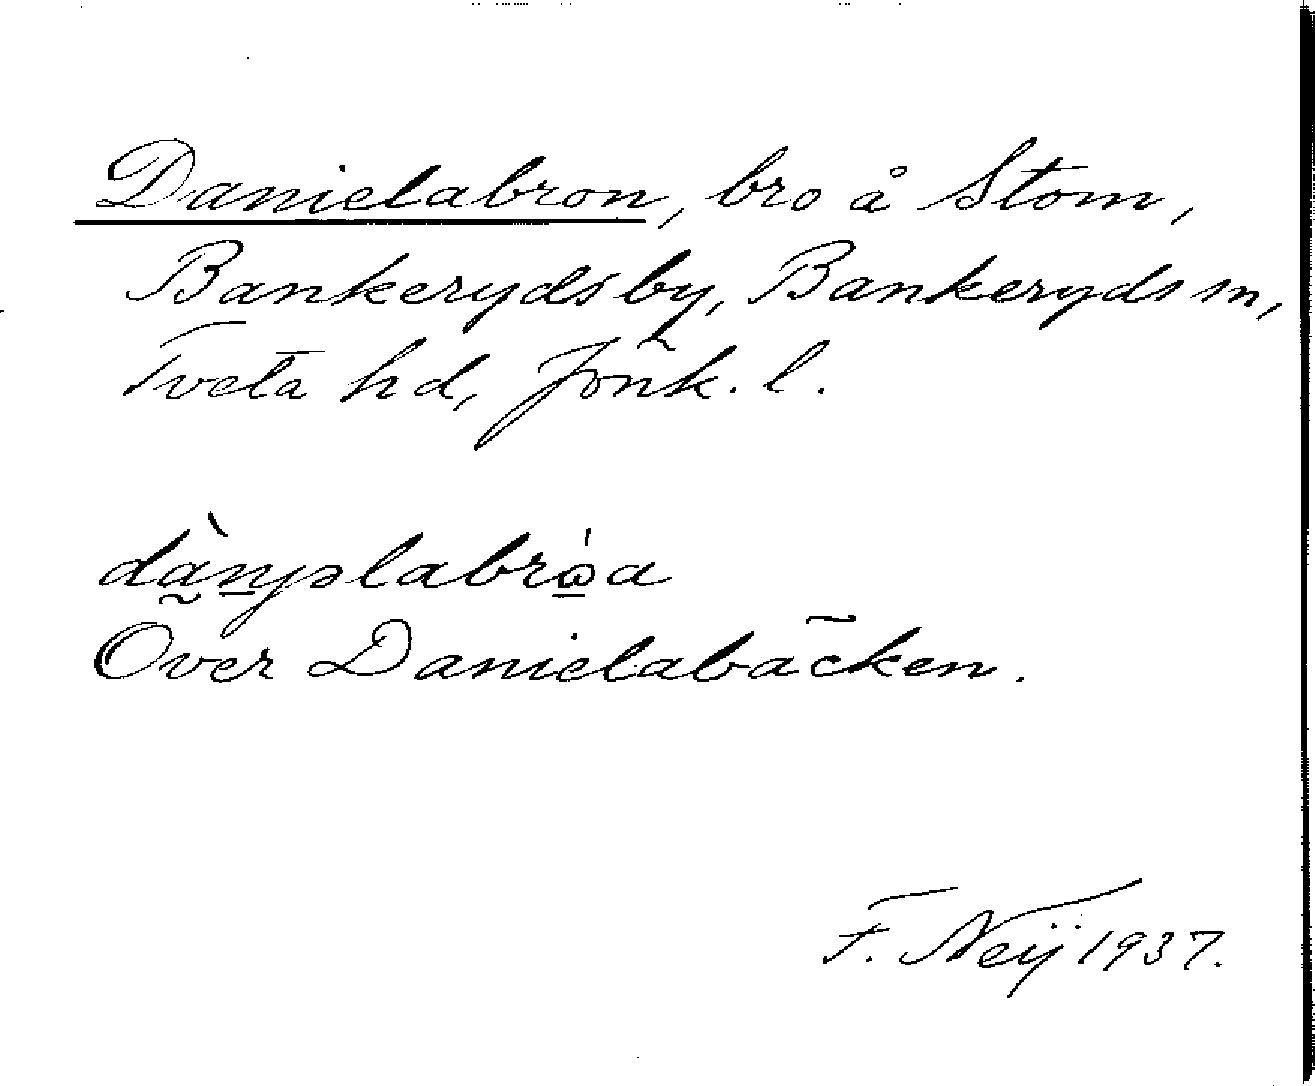 Danielabron, bro å Stom,
Bankeryds by, Bankeryds sn,
Tveta hd, Jönk. l.
Över Danielabäcken.
F. Neij 1937.